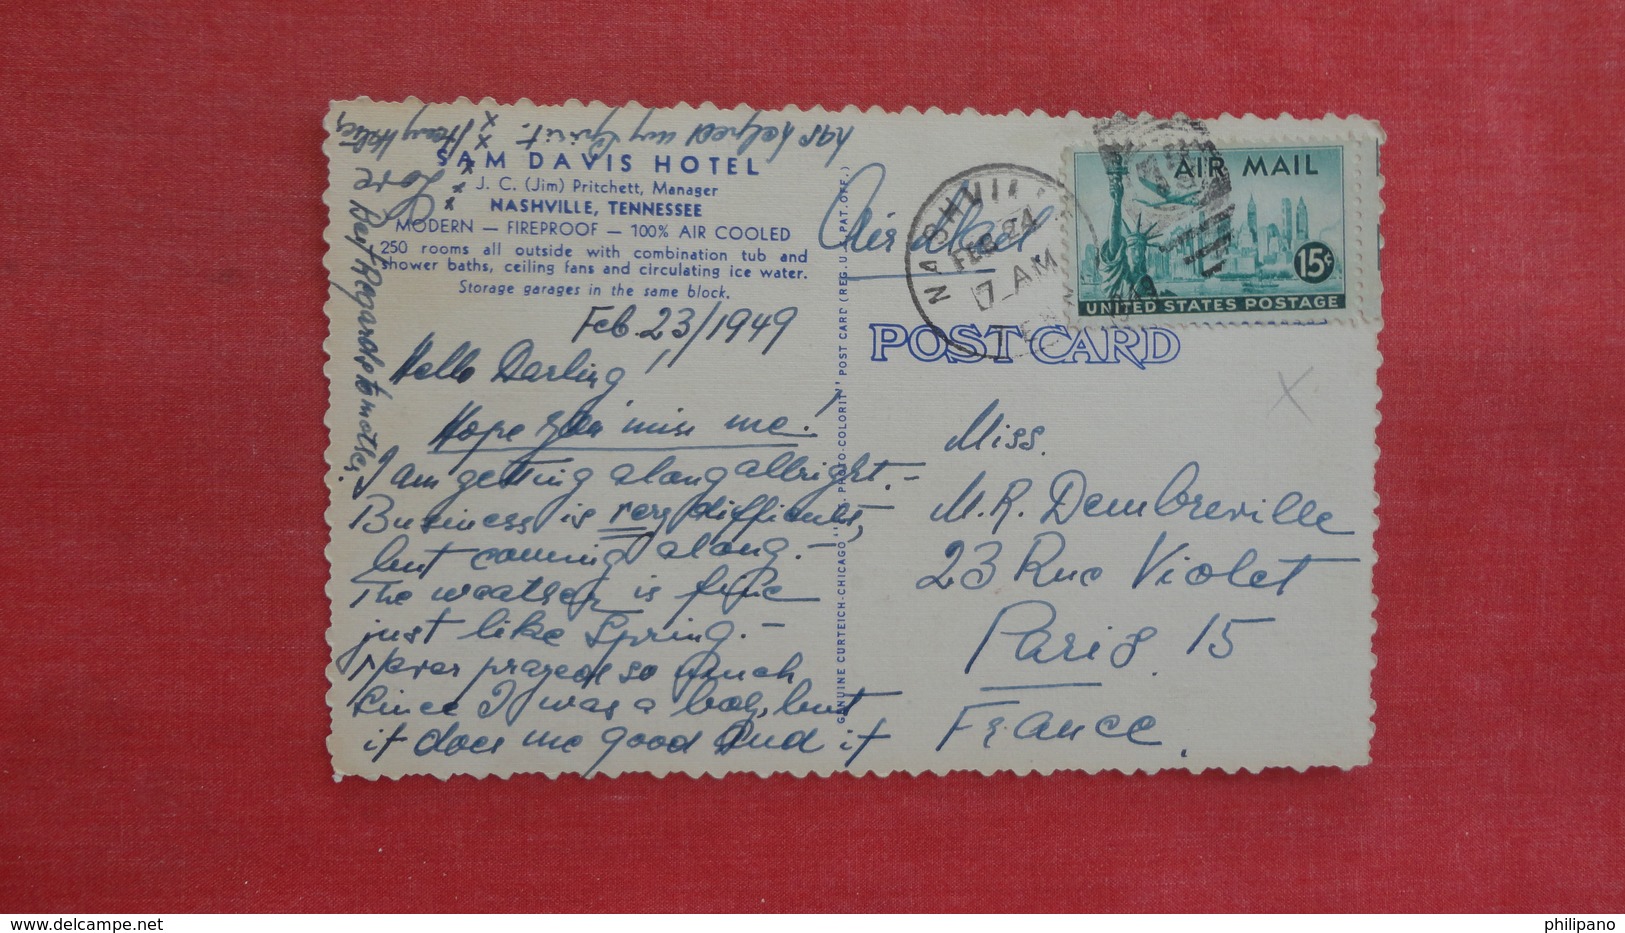 SAM DAVIS HOTEL
J. C. (Jim) Pritchett, Manager
NASHVILLE, TENNESSEE
MODERN — FIREPROOF — 100% AIR COOLED
250 rooms all outside with combination tub and
shower baths, ceiling fans and circulating ice water.
Storage garages in the same block.
Feb. 23/1949
Hello Darling
Hope you miss me!
I am getting along allright.-
Business is very difficult,
but coming along.-
The weather is fine
just like Spring.-
Never prayed so much
Since I was a boy, but
it does me good And it
has helped my Spirit.
Love
Best Regards to mother
GENUINE CURTEICH-CHICAGO "C.T. PHOTO-COLORIT" POST CARD (REG. U.S. PAT. OFF.)
Air Mail
NASHVILLE
FEB 24
7 - AM
1949
TENN.
AIR MAIL
15¢
UNITED STATES POSTAGE
POST CARD
Miss.
M.R. Dembreville
23 Rue Violet
Paris. 15
France.
delcampe.net
philipano